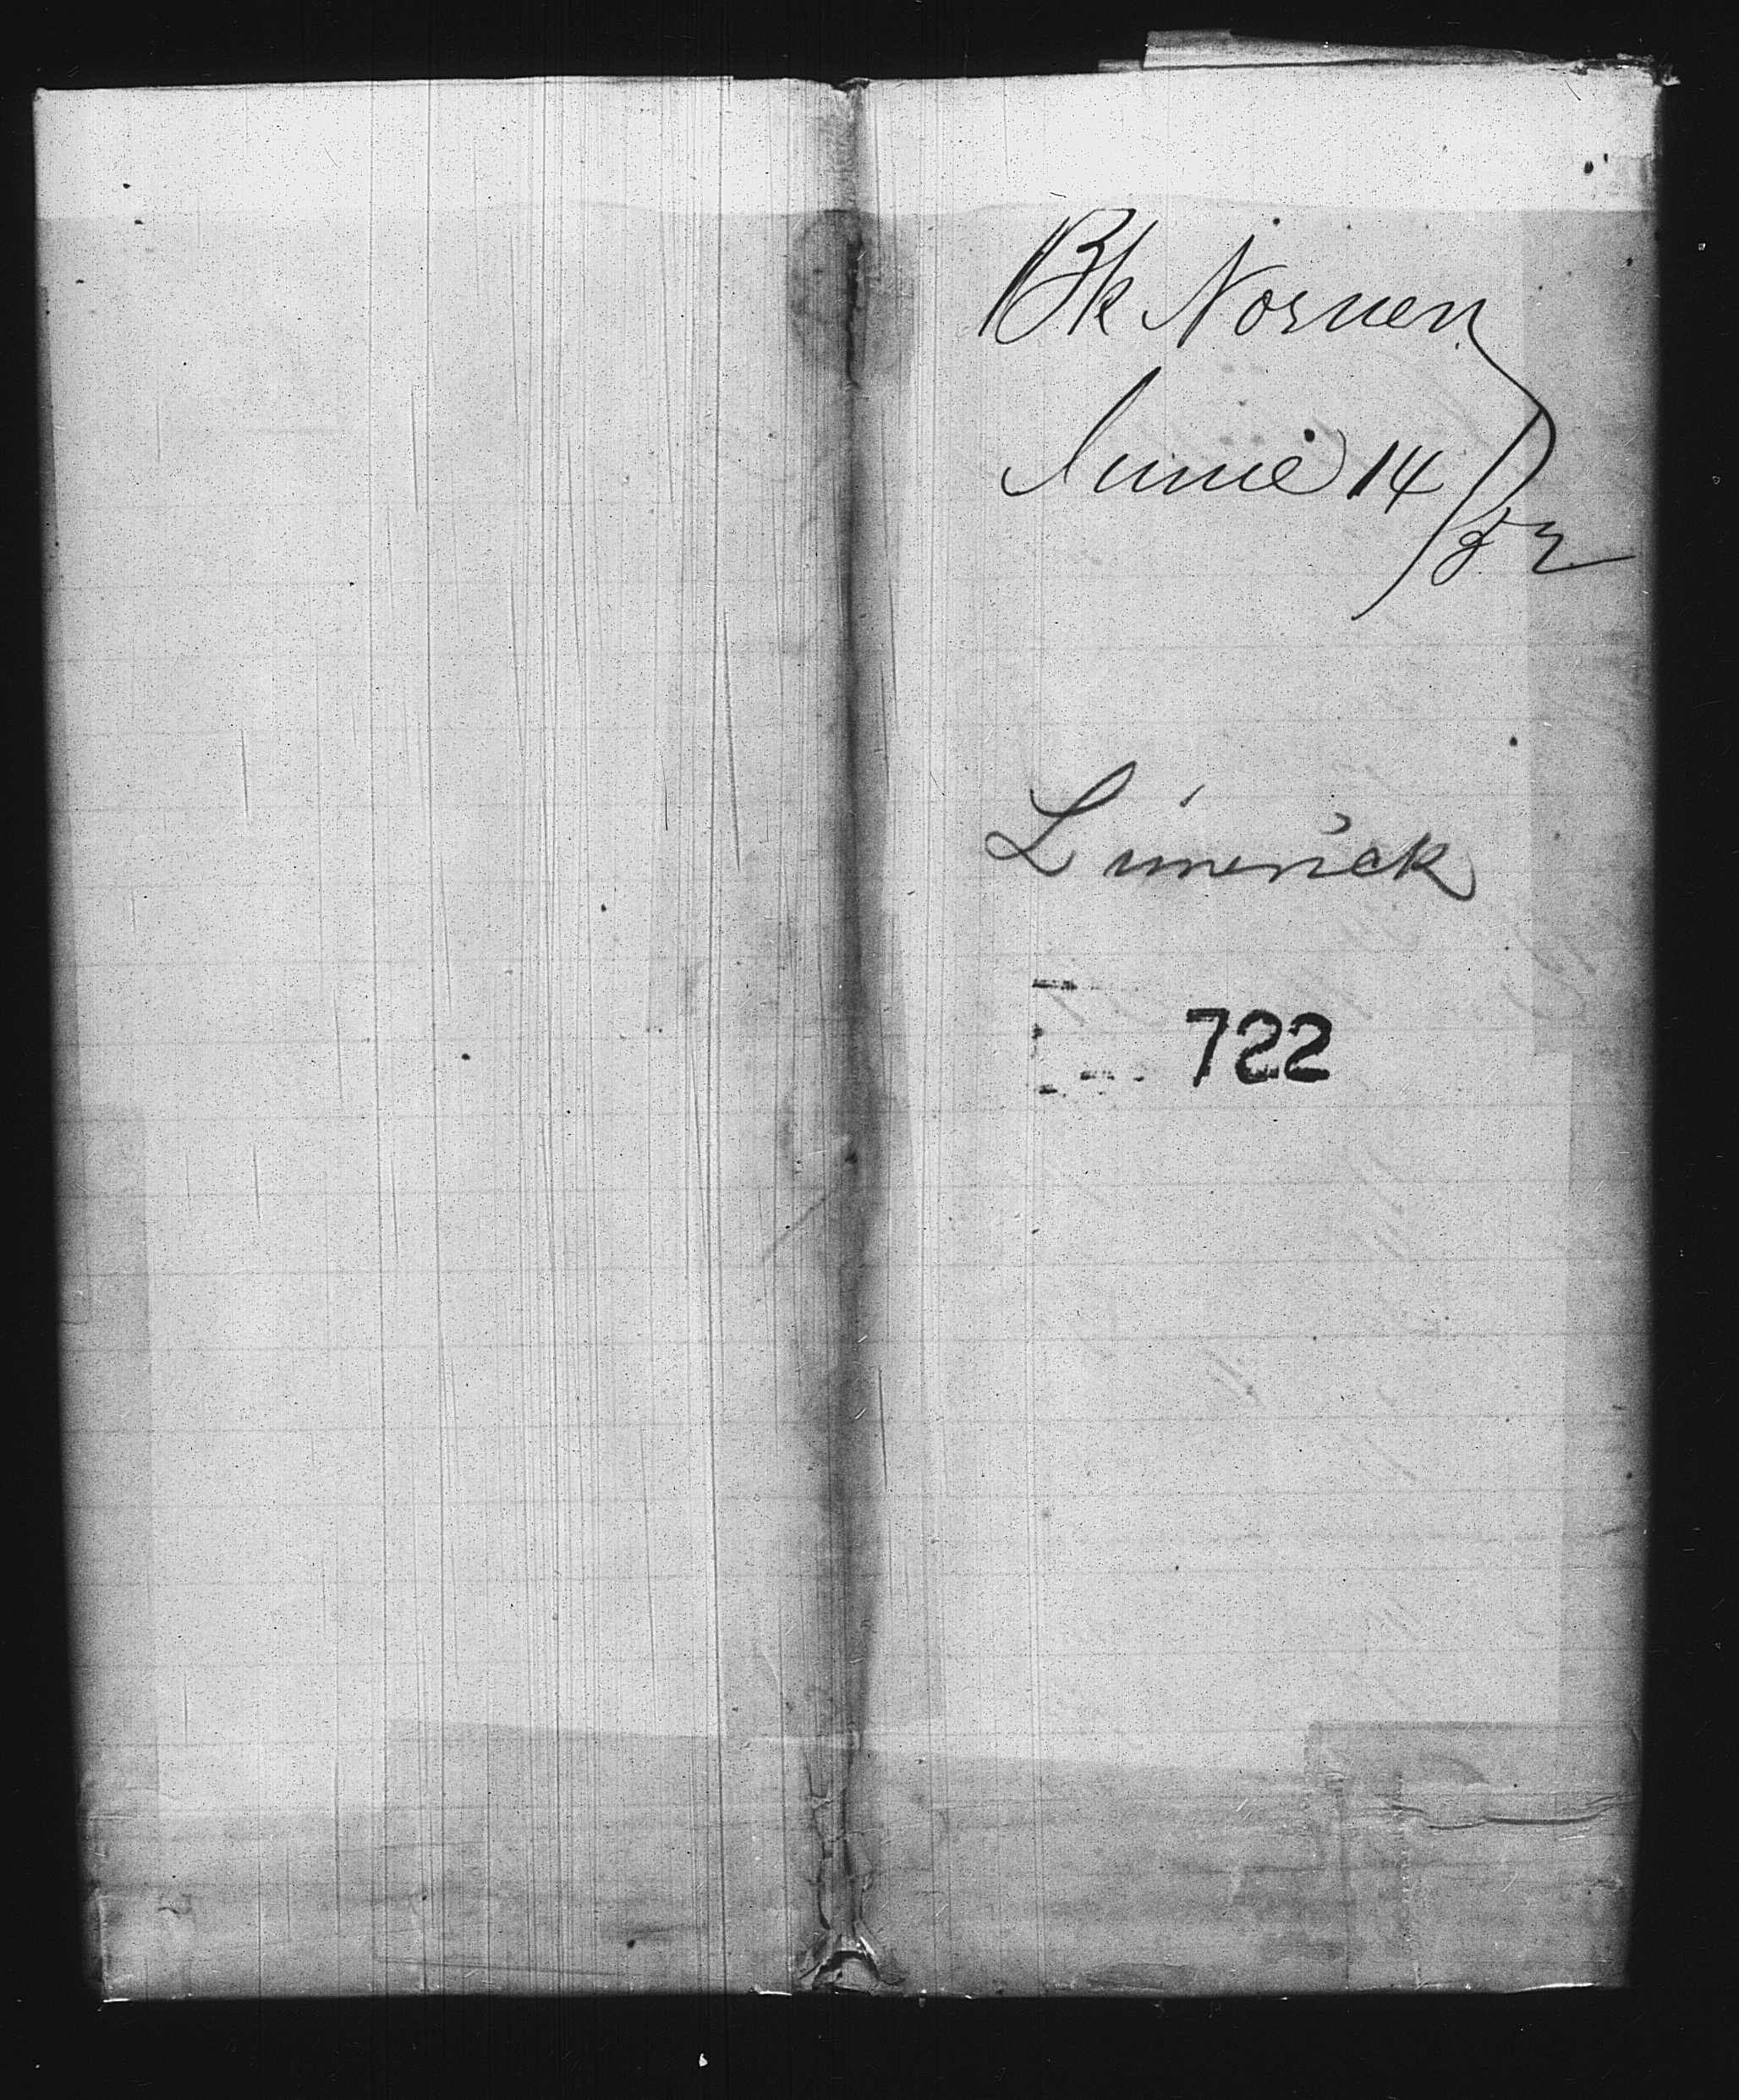 Bk Nornen
June 14/82
Limerick
722